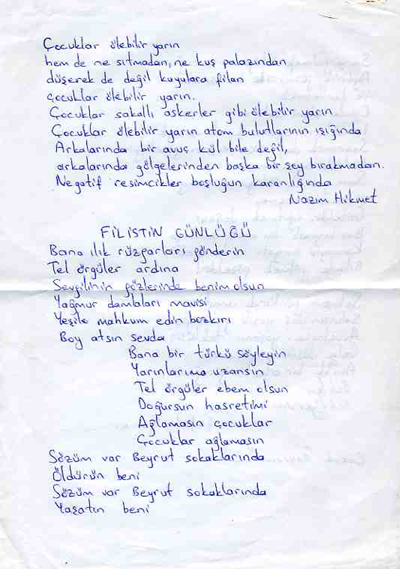 Çocuklar ölebilir yarın
hem de ne sıtmadan, ne kuş palazından
düşerek de değil kuyulara filan
çocuklar ölebilir yarın.
Çocuklar sakallı askerler gibi ölebilir yarın
Çocuklar ölebilir yarın atom bulutlarının ışığında
Arkalarında bir avuç kül bile değil,
arkalarında gölgelerinden başka bir şey bırakmadan.
Negatif resimcikler boşluğun karanlığında
Nazım Hikmet
FİLİSTİN GÜNLÜĞÜ
Bana ılık rüzgarları gönderin
Tel örgüler ardına
Sevgilinin gözlerinde benim olsun
Yağmur damlaları mavisi
Yeşile mahkum edin bozkırı
Boy atsın sevda
Bana bir türkü söyleyin
Yarınlarıma uzansın
Tel örgüler ebem olsun
Doğursun hasretimi
Ağlamasın çocuklar
Çocuklar ağlamasın
Sözüm var Beyrut sokaklarında
Öldürün beni
Sözüm var Beyrut sokaklarında
Yaşatın beni